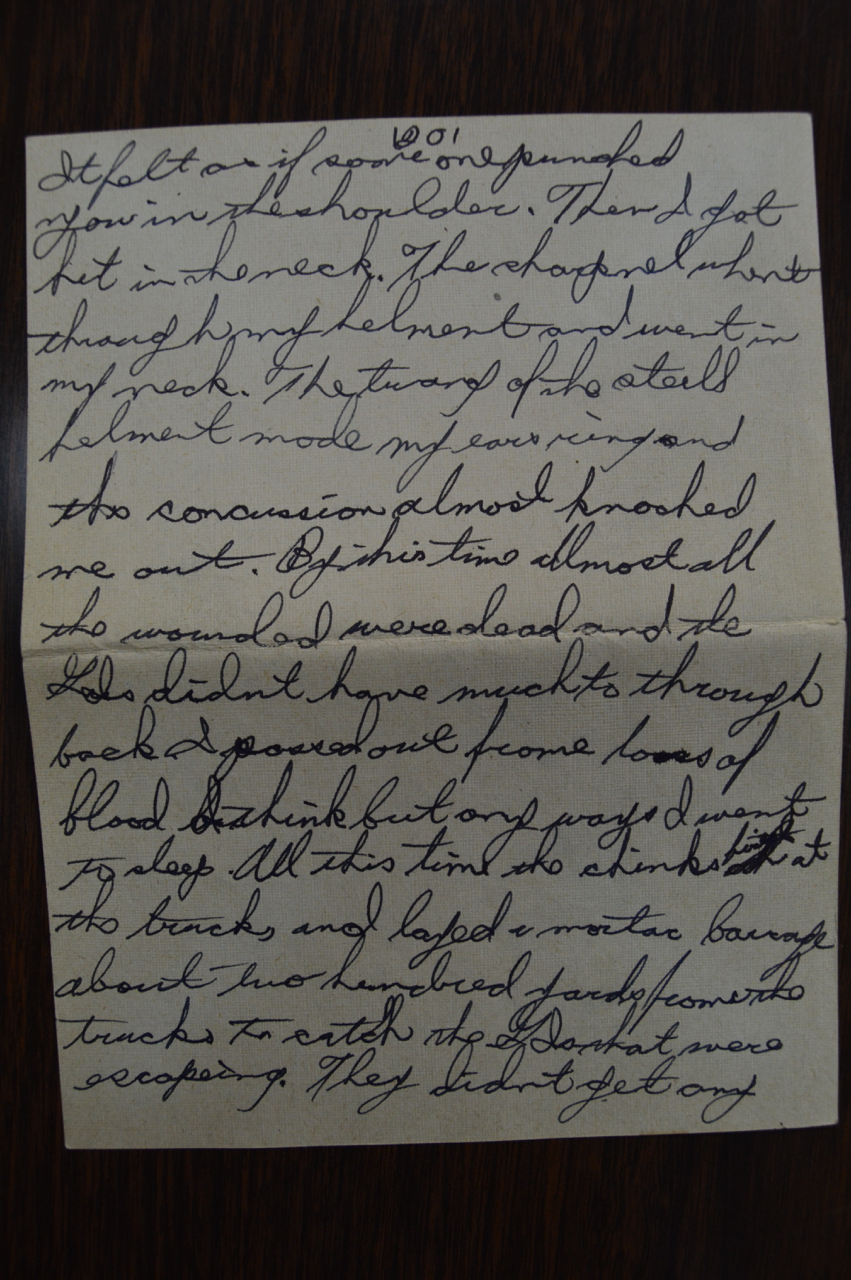 1201
It felt as if some one punched
you in the shoulder. Then I got
hit in the neck. The shapnel whent
through my helment and went in
my neck. The twang of the steell
helment made my ears ring and
the concussion almost knocked
me out. By this time allmost all
the wounded were dead and the
GIs didn't have much to through
back I passed out frome loss of
blood I think but any ways I went
to sleep. All this time the chinks at
the trucks and layed a mortar barrage
about two hundred yards frome the
trucks to catch the GIs that were
escapeing. They didn't get any